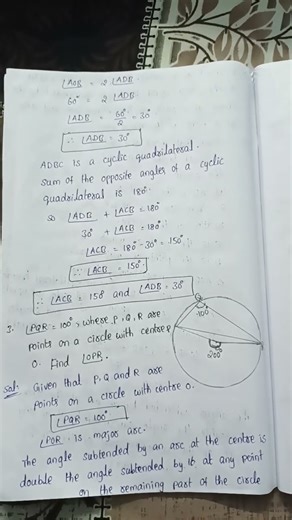 ∠AOB = 2 ∠ADB
60° = 2 ∠ADB
∠ADB = 60°/2 = 30°
∴ ∠ADB = 30°
ADBC is a cyclic quadrilateral.
Sum of the opposite angles of a cyclic
quadrilateral is 180°
so ∠ADB + ∠ACB = 180°
30° + ∠ACB = 180°
∠ACB = 180° - 30° = 150°
∴ ∠ACB = 150°
∴ ∠ACB = 150° and ∠ADB = 30°
3. ∠PQR = 100°, where P, Q, R are
points on a circle with centre
O. Find ∠OPR.
Q
100°
P
200°
R
Sol: Given that P, Q and R are
points on a circle with centre O.
∠PQR = 100°
∠POR is major arc.
The angle subtended by an arc at the centre is
double the angle subtended by it at any point
on the remaining part of the circle